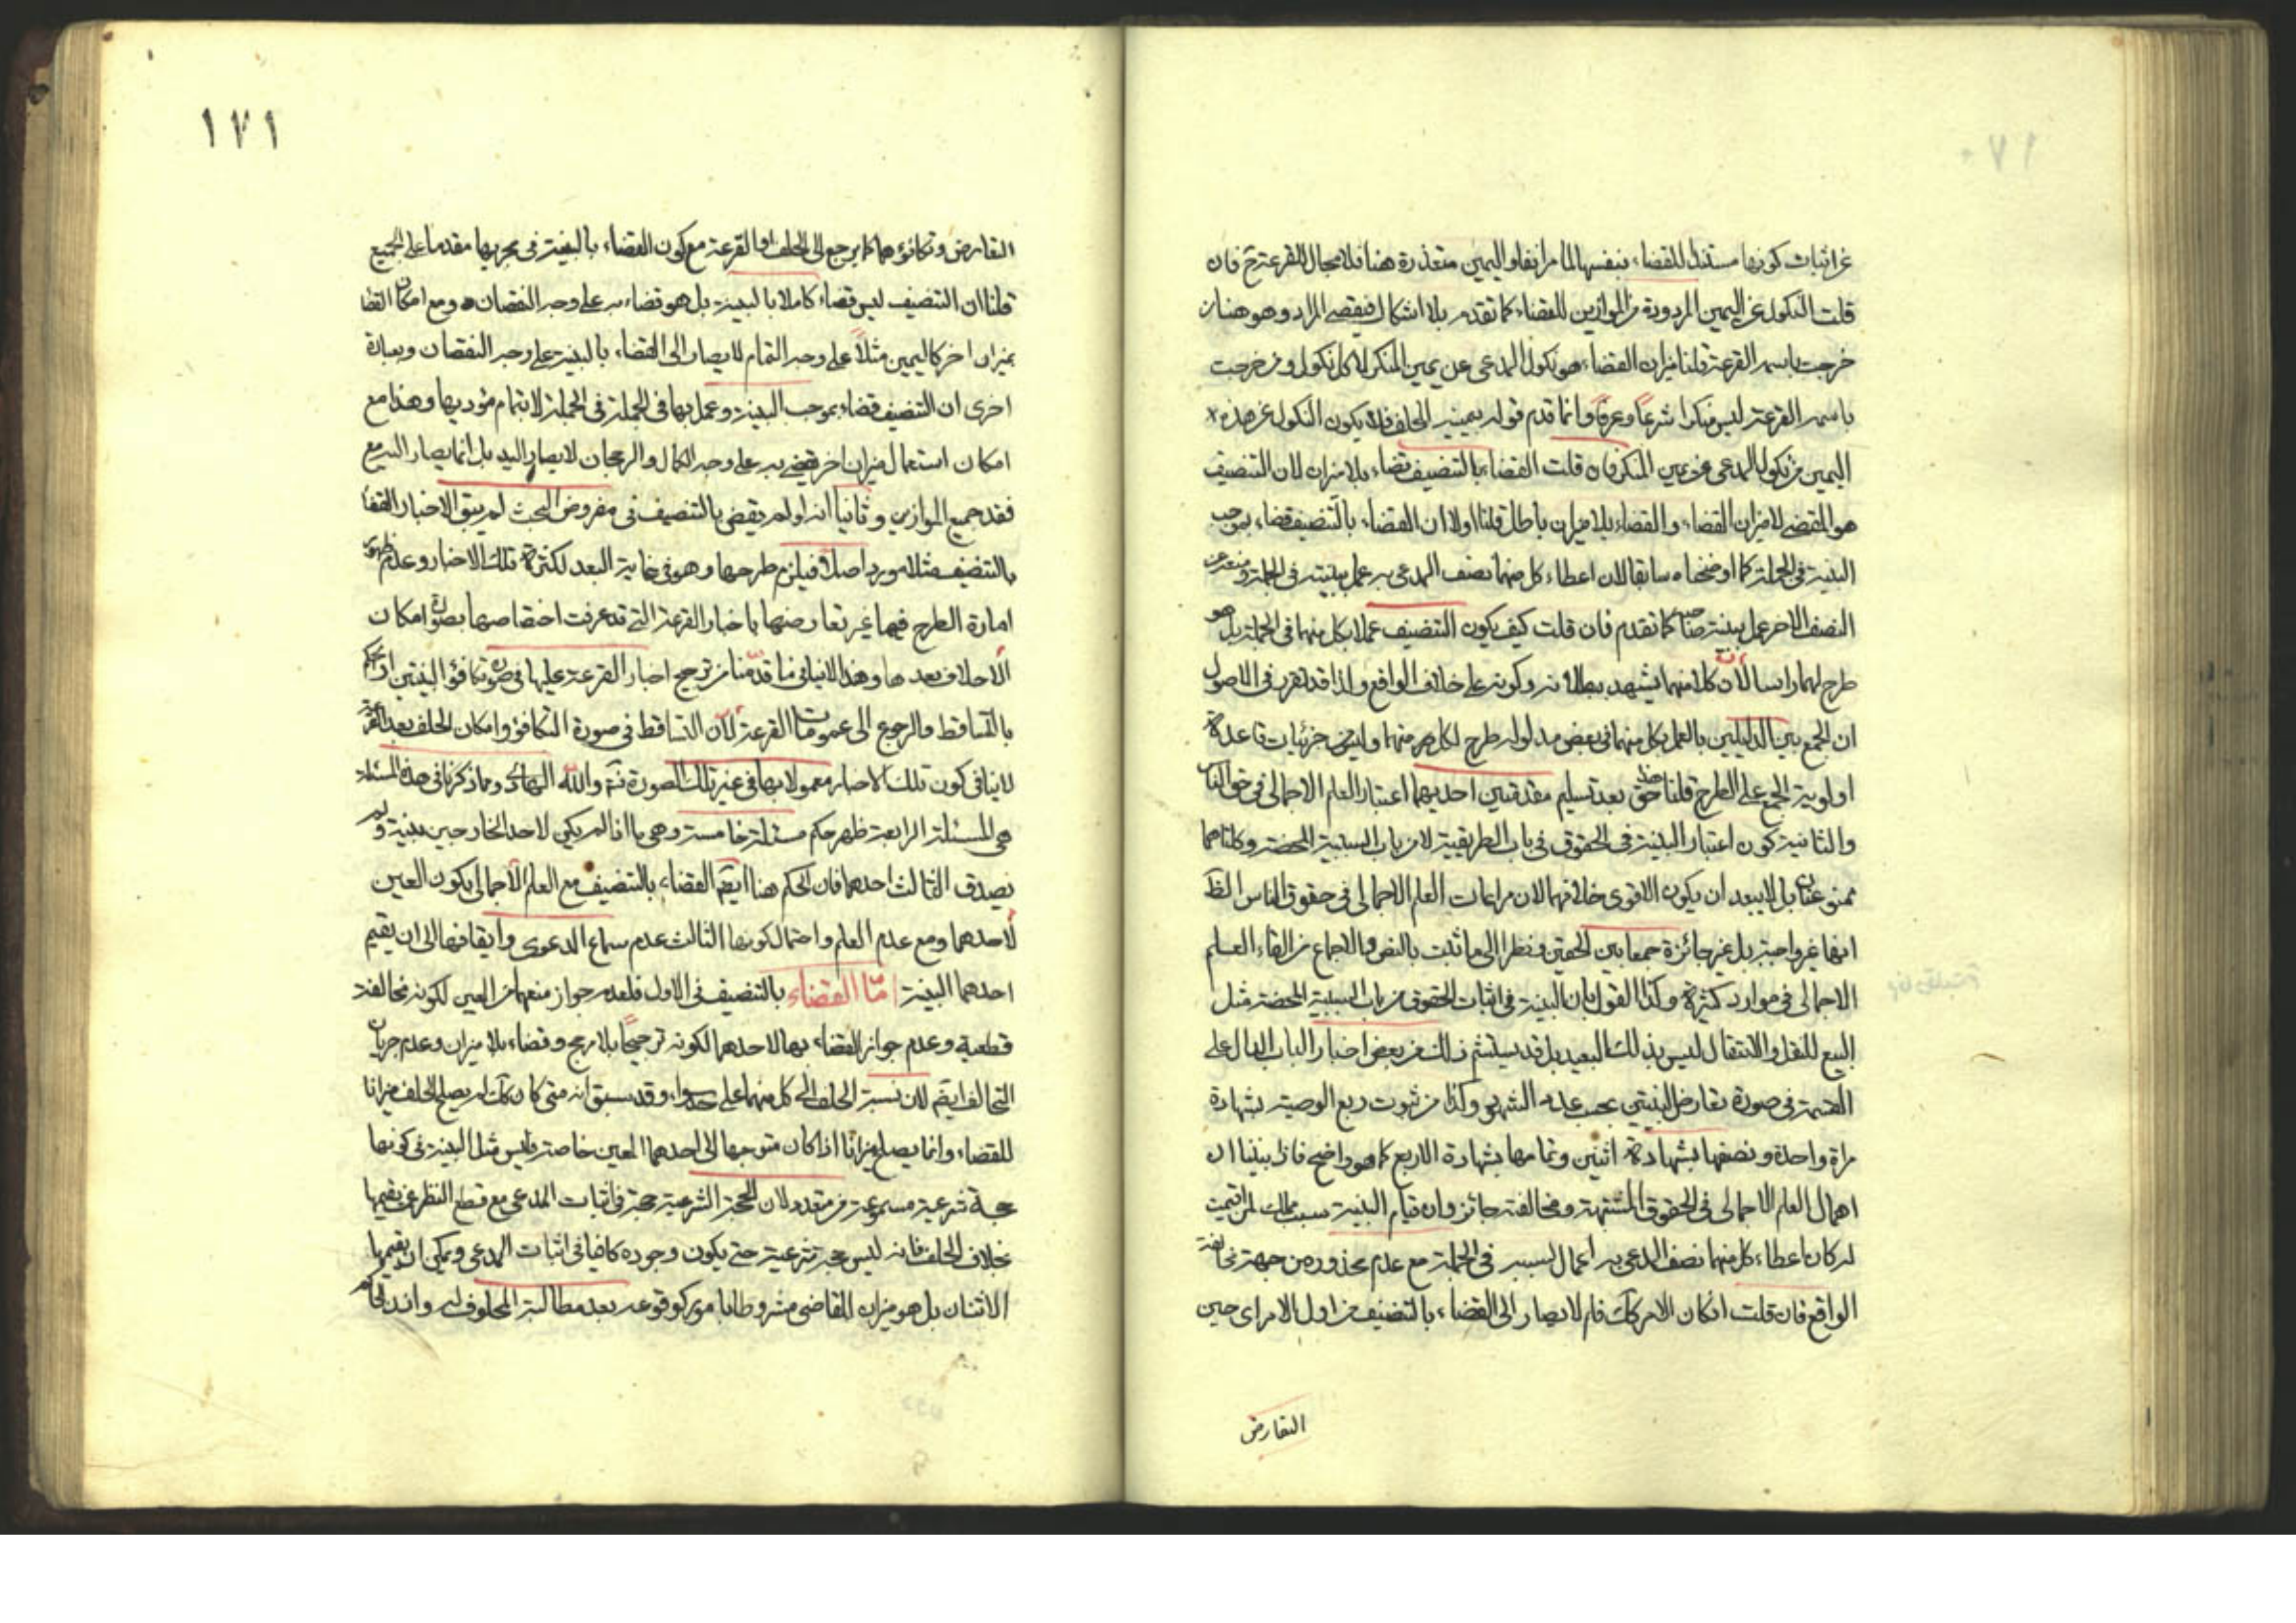 عن اثبات كونها مستندا للقضاء بنفسها لما مر انفا واليمين متعذرة هنا فلا مجال للقرعة ح فان
قلت النكول عن اليمين المردودة من الموازين للقضاء كما تقدم بلا اشكال فيقضى المراد وهو هنا من
خرجت باسمه القرعة قلنا ميزان القضاء هو نكول المدعى عن يمين المنكر لا كل نكول ومن خرجت
باسمه القرعة ليس منكرا شرعا وعرفا وانما قدم قوله بيمينه الحلف فلا يكون النكول عن هذه
اليمين من نكول المدعى عن يمين المنكر فان قلت القضاء بالتنصيف قضاء بلا ميزان لان التنصيف
هو المقضى لا ميزان القضاء والقضاء بلا ميزان باطل قلنا اولا ان القضاء بالتنصيف قضاء بموجب
البينة في الجملة كما اوضحناه سابقا لان اعطاء كل منهما نصف المدعى به عمل ببينته في الجملة ومنعه عن
النصف الاخر عمل ببينة صاحبه كما تقدم فان قلت كيف يكون التنصيف عملا بكل منهما في الجملة بل هو
طرح لهما راسا لان كلا منهما يشهد ببطلانه وكونه على خلاف الواقع ولذا قد تقرر في الاصول
ان الجمع بين الدليلين بالعمل بكل منهما في بعض مدلوله طرح لكل منهما وليس من جزئيات قاعدة
اولوية الجمع على الطرح قلنا هذا حق بعد تسليم مقدمتين احديهما اعتبار العلم الاجمالى في حق الناس
والثانية كون اعتبار البينة في الحقوق في باب الطريقية لا من باب السببية المحضة وكلتاهما
ممنوعتان بل لا يبعد ان يكون الاقوى خلافهما لان مراعات العلم الاجمالى في حقوق الناس الظ
انها غير واجبة بل غير جائزة جمعا بين الحقين ونظرا الى ما ثبت بالنص والاجماع من الغاء العلم
الاجمالى في موارد كثيرة وكذا القول بان البينة في اثبات الحقوق من باب السببية المحضة مثل
البيع للنقل والانتقال ليس بذلك البعيد بل قد يستشم ذلك من بعض اخبار الباب الدال على
القسمة في صورة تعارض البينتين بحسب عدد الشهود وكذا من ثبوت ربع الوصية بشهادة
مراة واحدة ونصفها بشهادة اثنين وتمامها بشهادة الاربع كما هو واضح فاذا بنينا ان
اهمال العلم الاجمالى في الحقوق المشتبهة ومخالفته جائز وان قيام البينة سبب مملك لمن اقيمت
له كان اعطاء كل منهما نصف المدعى به اعمال لسببه في الجملة مع عدم محذور من جهة مخالفة
الواقع فان قلت اذا كان الامر كك فلم لا يصار الى القضاء بالتنصيف من اول الامر اى حين
التعارض
١٧١
التعارض وتكافؤهما كما يرجع الى الحلف او القرعة مع كون القضاء بالبينة في تحريرها مقدما على الجميع
قلنا ان التنصيف ليس قضاء كاملا بالبينة بل هو قضاء به على وجه النقصان ومع امكان القضا
بميزان اخر كاليمين مثلا على وجه التمام لا يصار الى القضاء بالبينة على وجه النقصان وبعبارة
اخرى ان التنصيف قضاء بموجب البينة وعمل بها في الجملة في الجملة لا بتمام مؤديها وهذا مع
امكان استعمال ميزان اخر يقضى به على وجه الكمال والرجحان لا يصار اليه بل انما يصار اليه مع
فقد جميع الموازين وثانيا انه لو لم يقض بالتنصيف في مفروض البحث لم يبق لاخبار القضا
بالتنصيف مثلا مورد اصلا فيلزم طرحها وهو في غاية البعد لكثرة تلك الاخبار وعدم ظهور
امارة الطرح فيها غير تعارضها باخبار القرعة التى قد عرفت اختصاصها بصورة امكان
الاحلاف بعدها وهذا لا ينافى ما قدمنا من ترجيح اخبار القرعة عليها في صورة تكافؤ البينتين او الحكم
بالتساقط والرجوع الى عمومات القرعة لان التساقط في صورة التكافؤ وامكان الحلف بعد القرعة
لا ينافى كون تلك الاخبار معمولا بها في غير تلك الصورة ثم والله الهادى ومما ذكرنا في هذه المسئلة
هى المسئلة الرابعة ظهر حكم مسئلة خامسة وهى ما اذا لم يكن لاحد الخارجين بينة ولم
يصدق الثالث احدهما فان الحكم هنا ايضا القضاء بالتنصيف مع العلم الاجمالى بكون العين
لاحدهما ومع عدم العلم واحتمال كونها الثالث عدم سماع الدعوى وايقافها الى ان يقيم
احدهما البينة اما القضاء بالتنصيف في الاول فلعدم جواز منعهما من العين لكونه مخالفة
قطعية وعدم جواز القضاء بها لاحدهما لكونه ترجيحا بلا مرجح وقضاء بلا ميزان وعدم جريان
التحالف ايضا لان نسبة الحلف الى كل منهما على حد سواء وقد سبق انه متى كان كك لم يصلح الحلف ميزانا
للقضاء وانما يصلح ميزانا اذا كان متوجها الى احدهما المعين خاصة وليس مثل البينة في كونها
حجة شرعية مسموعة من متعدد لان الحجة الشرعية حجة في اثبات المدعى مع قطع النظر عن مقيمها
بخلاف الحلف فانه ليس حجة شرعية حتى يكون وجوده كافيا في اثبات المدعى ويمكن ان يقيمها
الاثنان بل هو ميزان للقاضى مشروطا بامور كوقوعه بعد مطالبة المحلوف له واذن الحاكم